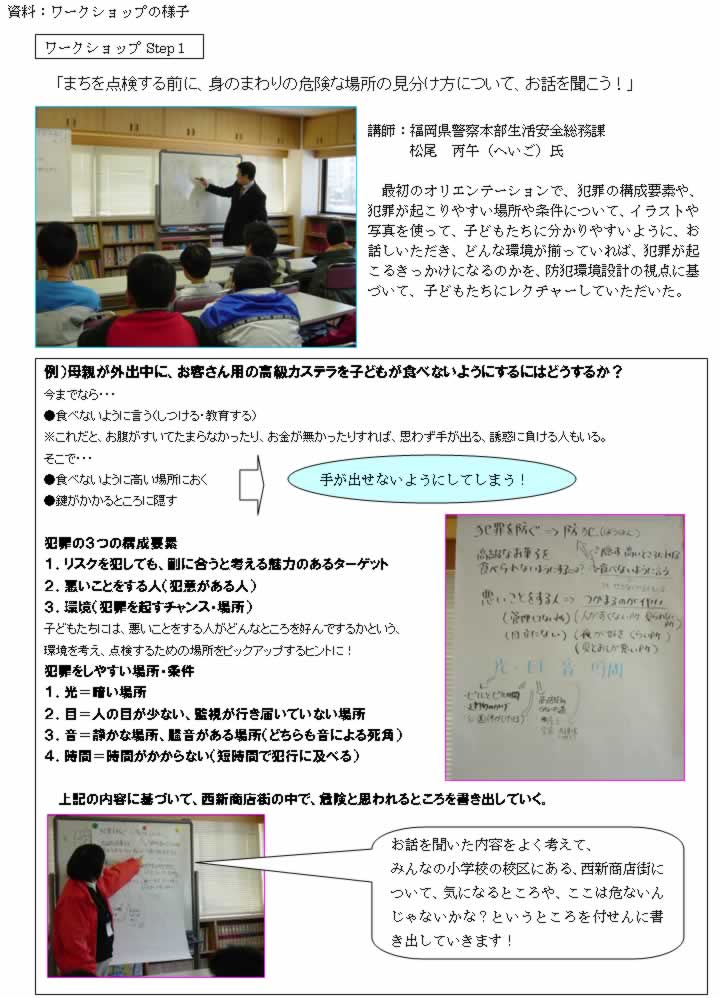 資料：ワークショップの様子
ワークショップ Step１
「まちを点検する前に、身のまわりの危険な場所の見分け方について、お話を聞こう！」
講師：福岡県警察本部生活安全総務課
松尾　丙午（へいご）氏
最初のオリエンテーションで、犯罪の構成要素や、
犯罪が起こりやすい場所や条件について、イラストや
写真を使って、子どもたちに分かりやすいように、お
話しいただき、どんな環境が揃っていれば、犯罪が起
こるきっかけになるのかを、防犯環境設計の視点に基
づいて、子どもたちにレクチャーしていただいた。
例）母親が外出中に、お客さん用の高級カステラを子どもが食べないようにするにはどうするか？
今までなら・・・
●食べないように言う（しつける・教育する）
※これだと、お腹がすいてたまらなかったり、お金が無かったりすれば、思わず手が出る、誘惑に負ける人もいる。
そこで・・・
●食べないように高い場所におく
●鍵がかかるところに隠す
手が出せないようにしてしまう！
犯罪の３つの構成要素
１．リスクを犯しても、割に合うと考える魅力のあるターゲット
２．悪いことをする人（犯意がある人）
３．環境（犯罪を起すチャンス・場所）
子どもたちには、悪いことをする人がどんなところを好んでするかという、
環境を考え、点検するための場所をピックアップするヒントに！
犯罪をしやすい場所・条件
１．光＝暗い場所
２．目＝人の目が少ない、監視が行き届いていない場所
３．音＝静かな場所、騒音がある場所（どちらも音による死角）
４．時間＝時間がかからない（短時間で犯行に及べる）
犯罪を防ぐ ⇒ 防犯
悪いことをする人 ⇒
光・目 音 時間
上記の内容に基づいて、西新商店街の中で、危険と思われるところを書き出していく。
お話を聞いた内容をよく考えて、
みんなの小学校の校区にある、西新商店街に
ついて、気になるところや、ここは危ないん
じゃないかな？というところを付せんに書
き出していきます！